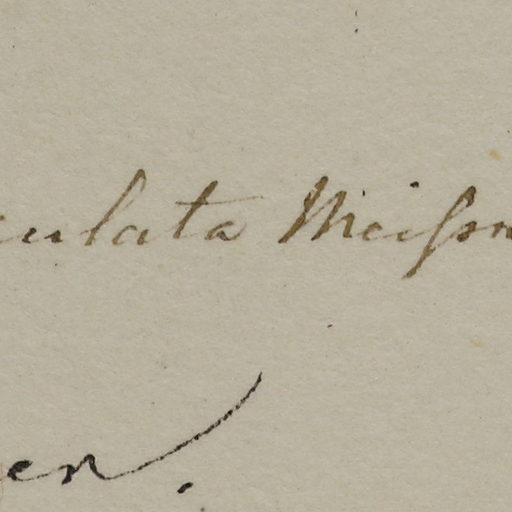 culata Meiſsn
en.